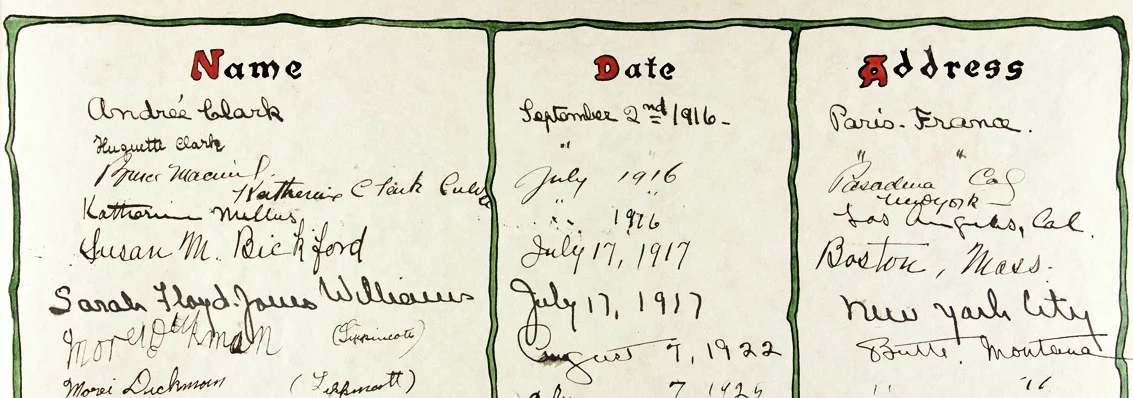 Name Date Address
Andrée Clark September 2nd 1916- Paris. France.
Huguette Clark " " "
July 1916 Pasadena Cal
Katherine Clark New York
Katherine Millus " " 1916 Los Angeles, Cal.
Susan M. Bickford July 17, 1917 Boston, Mass.
Sarah Floyd-Jones Williams July 17, 1917 New York City
(Lippincott) August 7, 1922 Butte, Montana
Dickman (Lippincott) 7 " "